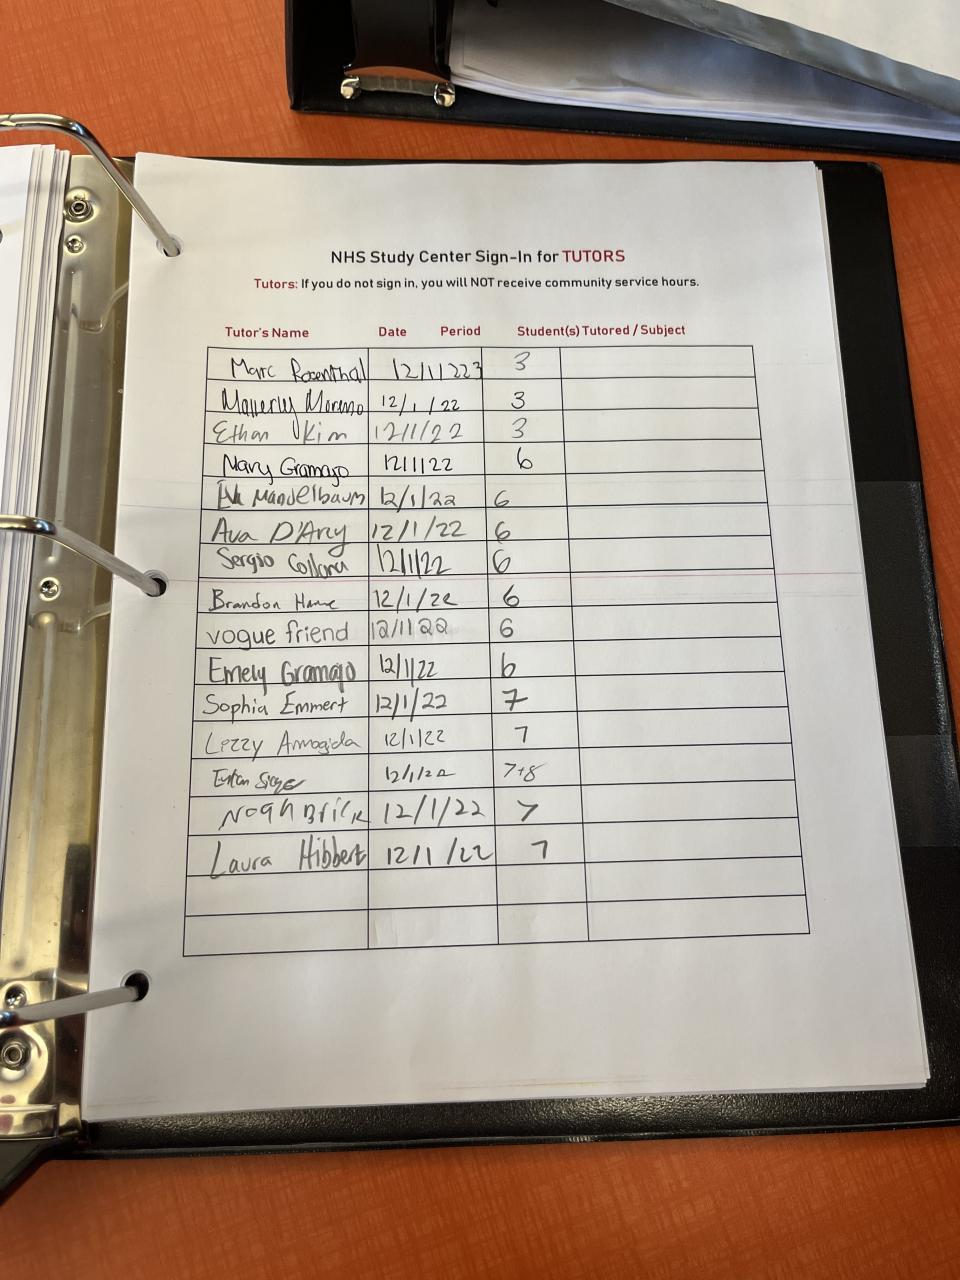 NHS Study Center Sign-In for TUTORS
Tutors: If you do not sign in, you will NOT receive community service hours.
Tutor's Name Date Period Student(s) Tutored / Subject
Marc Rosenthal 12/1/223 3
Moreno 12/1/22 3
Ethan Kim 12/1/22 3
Mary Gramajo 12/1/22 6
Mandelbaum 12/1/22 6
Ava D'Arcy 12/1/22 6
Sergio 12/1/22 6
Brandon 12/1/22 6
vogue friend 12/1122 6
Emely Gramajo 12/1/22 6
Sophia Emmert 12/1/22 7
Lezzy 12/1/22 7
12/1/22 7+8
Noah Brick 12/1/22 7
Laura Hibbert 12/1/22 7